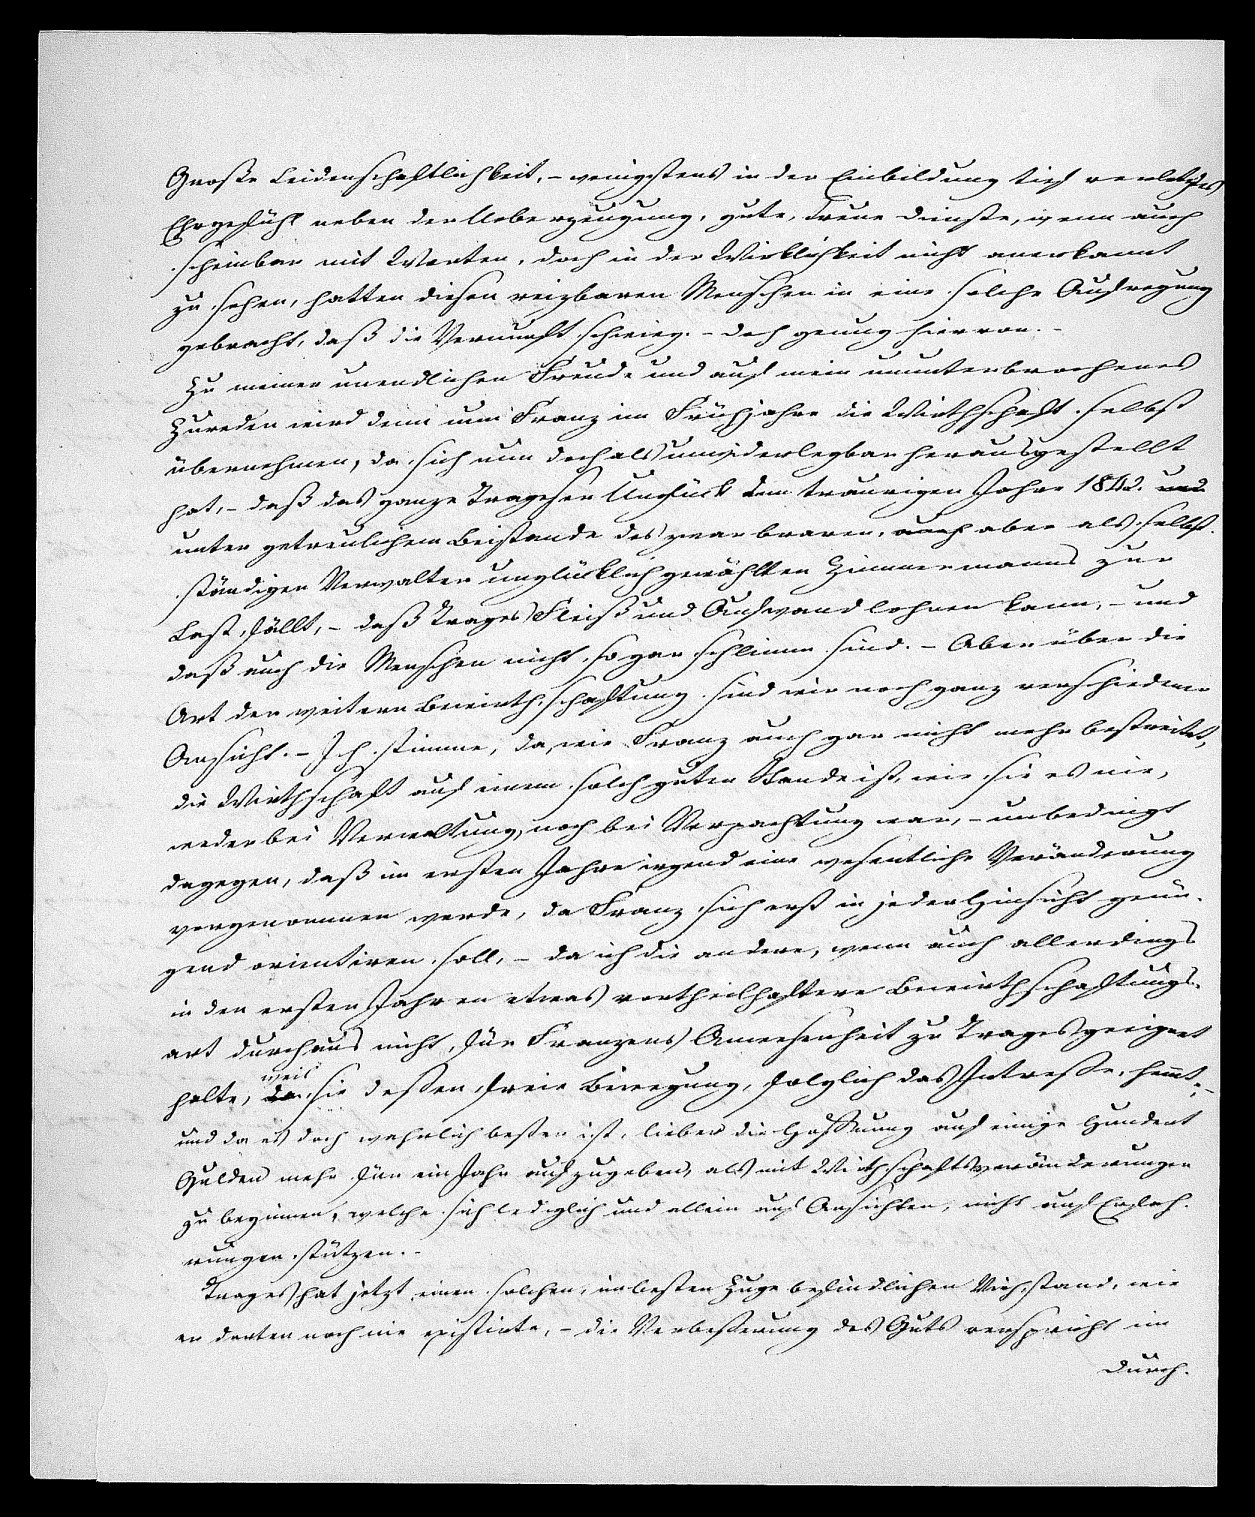 Große Leidenschaftlichkeit, – wenigstens in der Einbildung tief verletztes
Ehrgefühl neben der Ueberzeugung, gute, treue Dienste, wenn auch
scheinbar mit Worten, doch in der Wirklichkeit nicht anerkannt
zu sehen, hatten diesen reizbaren Menschen in eine solche Aufregung
gebracht, daß die Vernunft schwieg. – Doch genug hiervon. –
Zu meiner unendlichen Freude und auf mein ununterbrochenes
Zureden wird denn nun Franz im Frühjahre die Wirthschaft selbst
übernehmen, da sich nun doch als unwiderlegbar herausgestellt
hat, – daß das ganze Trageser Unglück dem traurigen Jahre 1842. und
unter getreulichem Beistande des zwar braven, auch aber als selbst-
ständigen Verwalter unglücklich gewählten Zimmermanns zur
Last fällt, – daß Trages Fleiß und Aufwand lohnen kann, – und
daß auch die Menschen nicht so gar schlimm sind. – Aber über die
Art der weitern Bewirthschaftung sind wir noch ganz verschiedener
Ansicht. – Ich stimme, da, wie Franz auch gar nicht mehr bestreitet,
die Wirthschaft auf einem solch guten Stande ist, wie sie es nie,
weder bei Verwaltung, noch bei Verpachtung war, – unbedingt
dagegen, daß im ersten Jahre irgend eine wesentliche Veränderung
vorgenommen werde, da Franz sich erst in jeder Hinsicht genü-
gend orientiren soll, – da ich die andere, wenn auch allerdings
in den ersten Jahren etwas vortheilhaftere Bewirthschaftungs-
art durchaus nicht für Franzens Anwesenheit zu Trages geeignet
halte, da weil sie dessen freie Bewegung, folglich das Intresse, hemt, –
und da es doch wahrlich besser ist, lieber die Hoffnung auf einige Hundert
Gulden mehr für ein Jahr aufzugeben, als mit Wirthschaftsveränderungen
zu beginnen, welche sich lediglich und allein auf Ansichten, nicht auf Erfah-
rungen stützen. –
Trages hat jetzt einen solchen, im besten Zuge befindlichen Viehstand, wie
er dorten noch nie existirte, – die Verbesserung des Guts verspricht im
Durch-